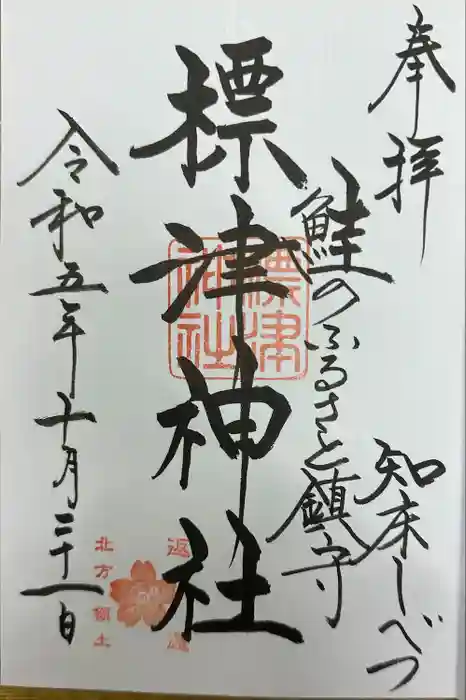 奉拝
知床しべつ
鮭のふるさと鎮守
標津神社
標津
神社
返
北方領土
令和五年十月三十一日